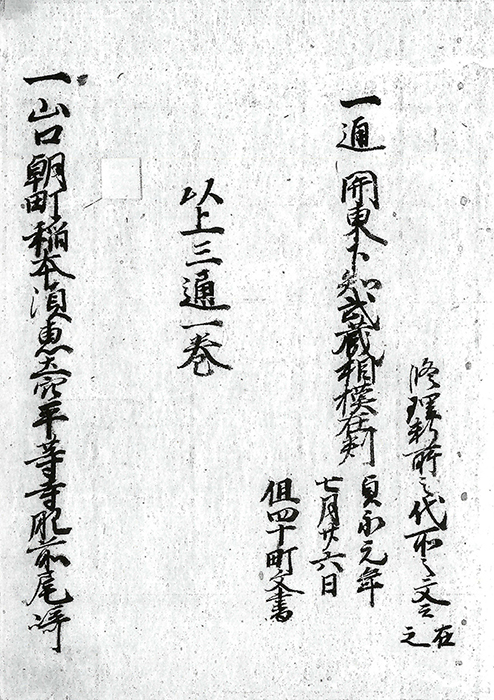 修理料所之代文云在之
一通 関東下知武蔵相模在判
貞永元年
七月廿六日
但四十町文書
以上三通一巻
一山口朝町稲本湏恵土穴平等寺肥前尾崎